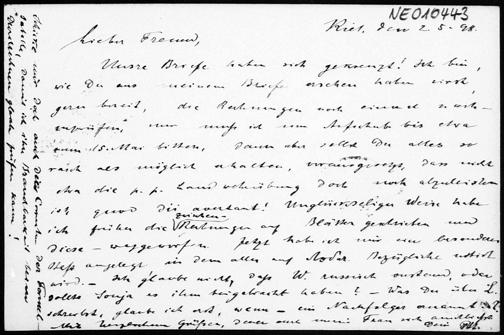 NE010443
Kiel, den 2-5-98.
Lieber Freund,
Unsre Briefe haben sich gekreuzt! Ich bin,
wie Du aus meinem Briefe ersehen haben wirst,
gern bereit, die Rechnungen noch einmal nach-
zuprüfen, nur muß ich um Aufschub bis etwa
zum 15. Mai bitten, dann aber sollst Du alles so
rasch als möglich erhalten, vorausgesetzt, dass nicht
etwa die p. p. Landesvertheidigung doch noch
ist quod dii avertant! Unglückseliger Weise habe
ich früher die Rechnungen auf Blätter geschrieben und
diese - weggeworfen. Jetzt hab ich mir ein besonderes
Heft angelegt, in dem alles auf Bezügliche notirt
wird. - Ich glaube nicht, dass W. russisch verstand, oder
sollte Sonja es ihm beigebracht haben? - Was Du über L.
schreibst, glaube ich erst, wenn - ein Nachfolger ernannt ist
Mit herzlichen Grüßen, Deiner Frau
Dein
Schicke mir doch auch Deine der Formel-
tabelle, damit ich ihre Brauchbarkeit beim
Durchrechnen gleich prüfen kann!